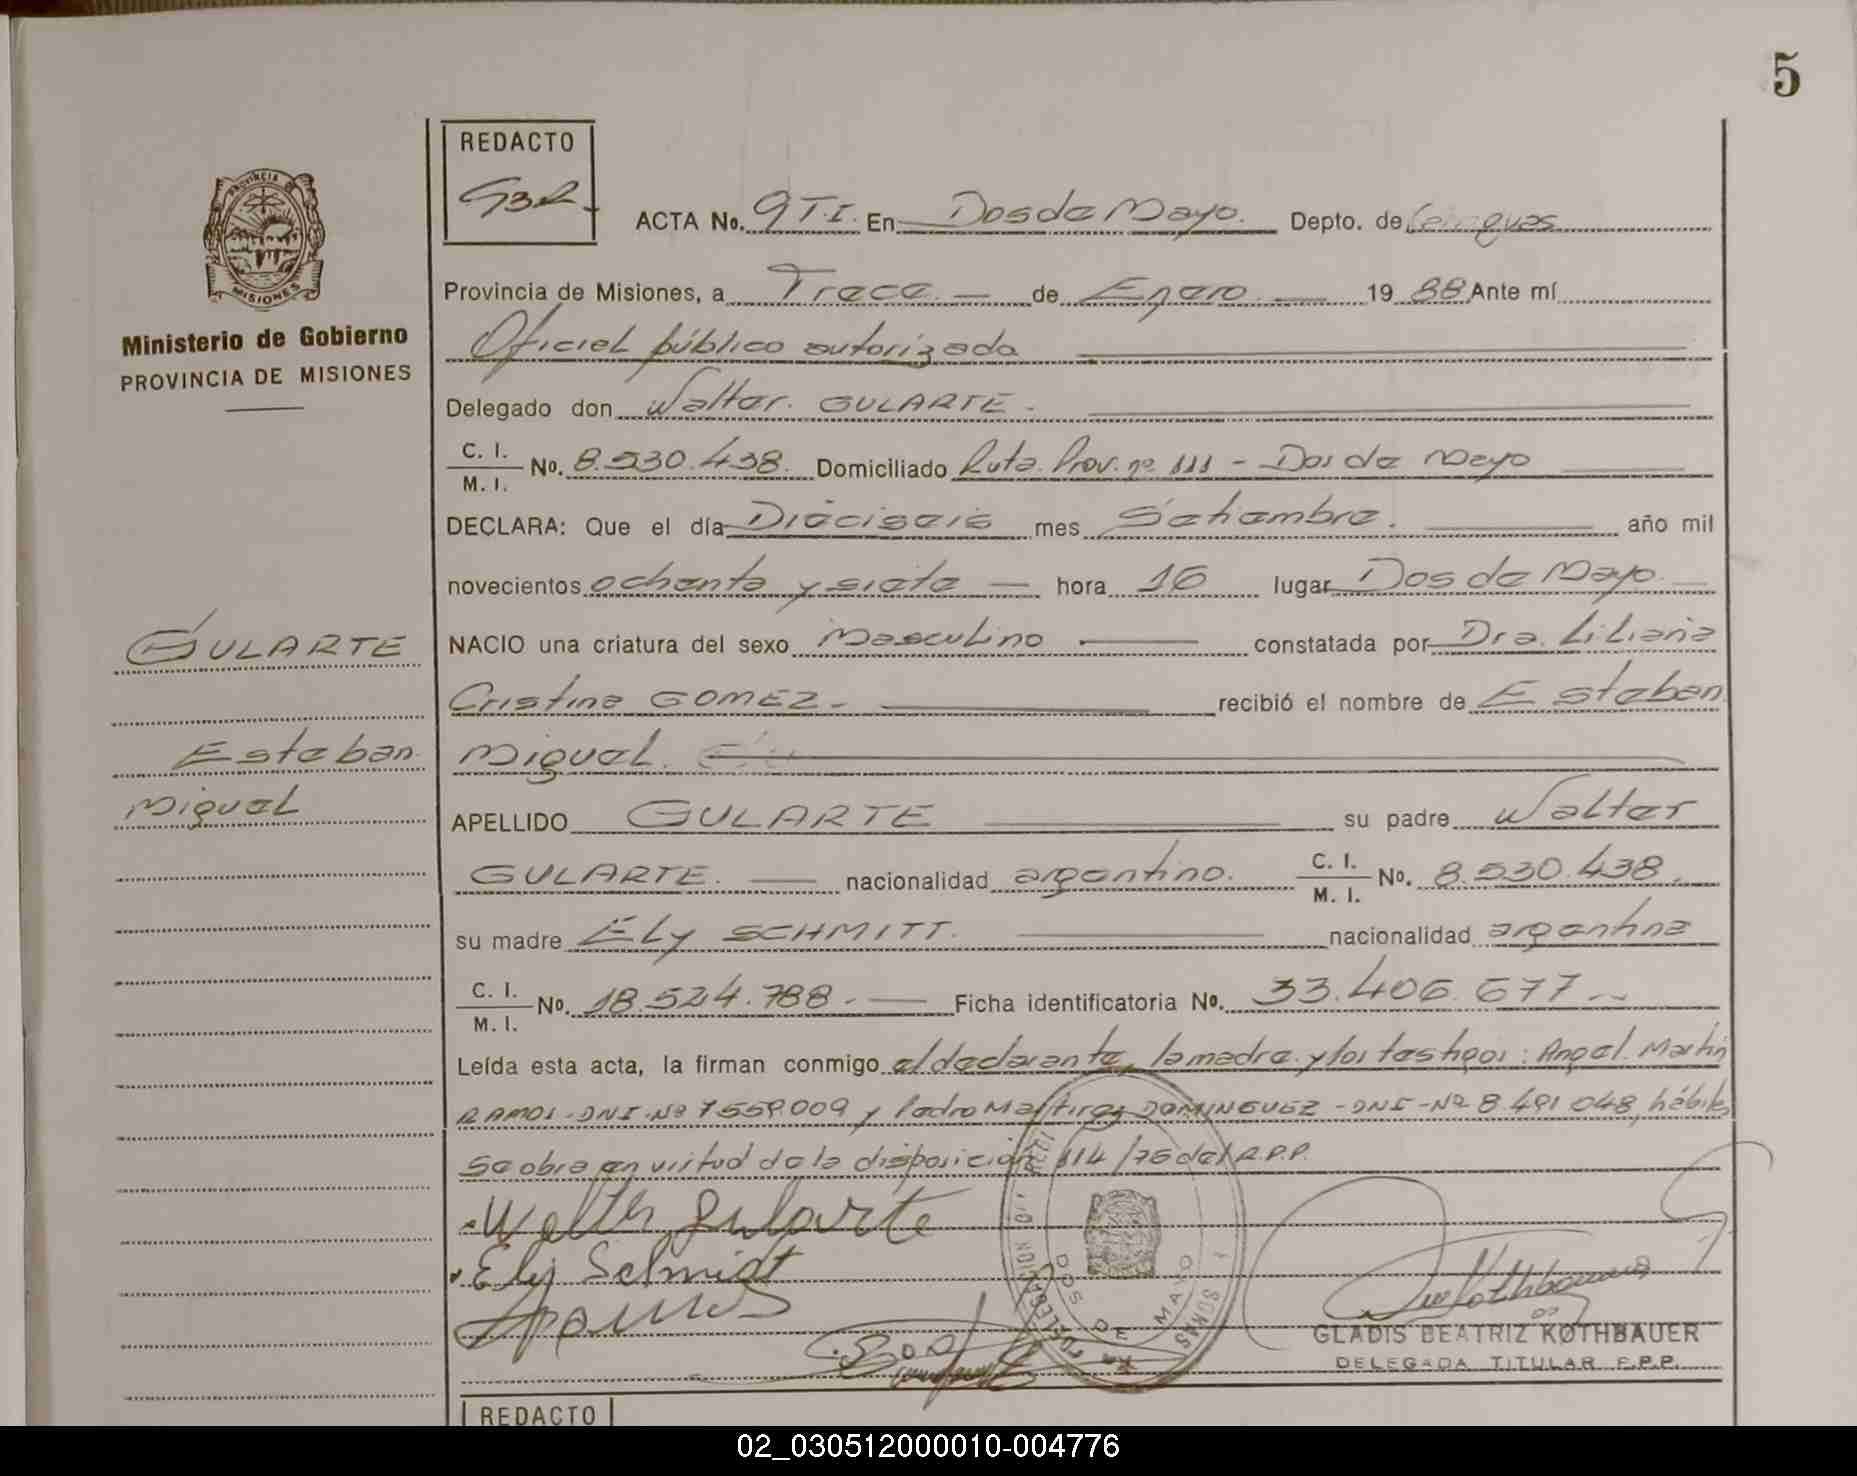 5
REDACTO
PROVINCIA DE
MISIONES
Ministerio de Gobierno
PROVINCIA DE MISIONES
ACTA No. 9 T.I. En Dos de Mayo. Depto. de
Provincia de Misiones, a Trece de Enero 19 88 Ante mí
Oficial público autorizada
Delegado don Walter GULARTE
C. I.
M. I. No. 8.530.438. Domiciliado Ruta Prov. nº 111 - Dos de Mayo
DECLARA: Que el día Dieciseis mes Setiembre. año mil
novecientos ochenta y siete hora 16 lugar Dos de Mayo
GULARTE
NACIO una criatura del sexo Masculino constatada por Dra. Liliana
Cristina GOMEZ. recibió el nombre de Esteban
Esteban
Miguel.
Miguel
APELLIDO GULARTE su padre Walter
GULARTE. nacionalidad argentino. C. I.
M. I. No. 8.530.438.
su madre Ely SCHMITT. nacionalidad argentina
C. I.
M. I. No. 18.524.788. Ficha identificatoria No. 33.406.677
Leída esta acta, la firman conmigo el declarante, la madre y los testigos: Angel Martin
RAMOS - DNI - Nº 7.559.009 y Pedro DOMINGUEZ - DNI - Nº 8.491.048, hábiles
Se obra en virtud de la disposición 114/76 del R.P.P.
Walter Gularte
Ely Schmidt
DOS DE MAYO
GLADIS BEATRIZ KOTHBAUER
DELEGADA TITULAR F.P.P.
REDACTO
02_030512000010-004776